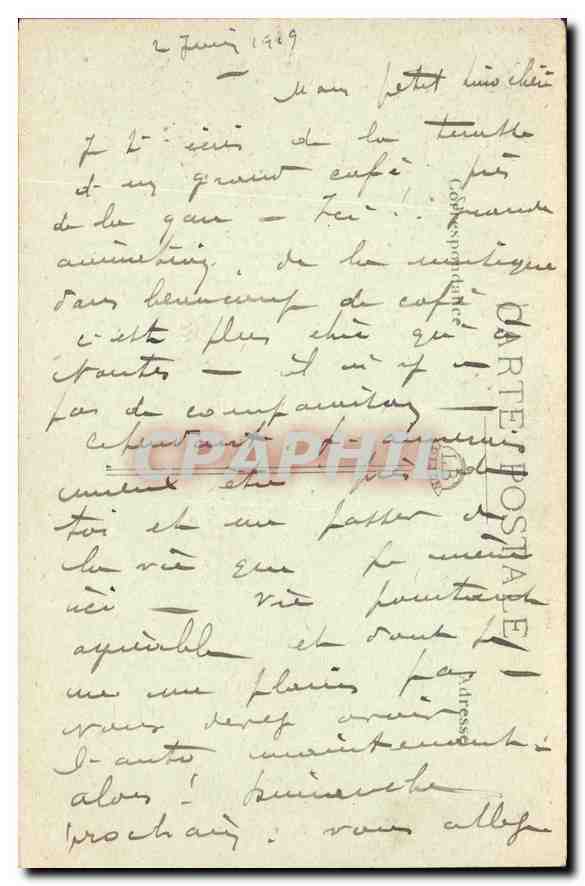 2 Juin 1919
Mon petit
Je t'écris de la terrasse
d'un grand café près
de la gare — Ici !! grande
animation, de la musique
dans beaucoup de café
c'est plus chic qu'à
Nantes — il n'y a
pas de comparaison —
cependant j'aimerais
mieux être près de
toi et me passer de
la vie que je mène
ici — vie pourtant
agréable et dont je
ne me plains pas —
vous devez avoir
l'auto maintenant :
alors ! Dimanche
prochain : vous allez
Correspondance
CARTE POSTALE
Adresse
CPAPHIL